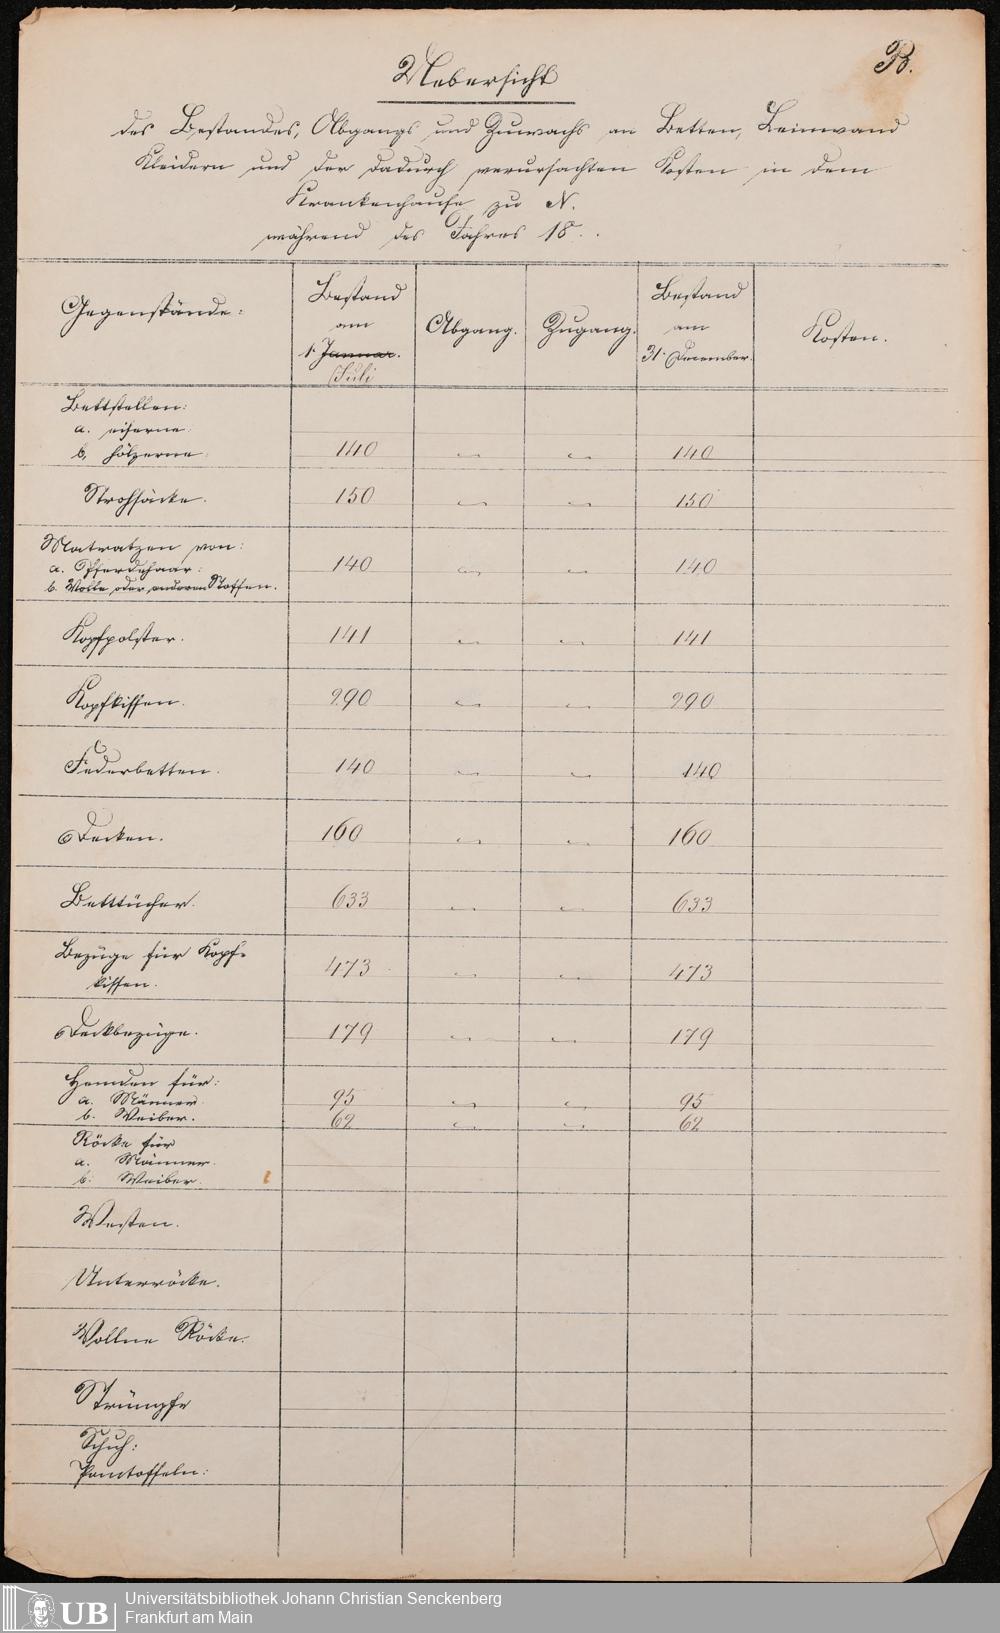 B.
Uebersicht
des Bestandes, Abgangs und Zuwachs an Betten, Leinwand
Kleidern und der dadurch verursachten Kosten in dem
Krankenhause zu N.
während des Jahres 18..
Gegenstände: Bestand am 1. Januar. Juli Abgang. Zugang. Bestand am 31. December. Kosten.
Bettstellen:
a. eiserne.
b. hölzerne. 140 " " 140
Strohsäcke. 150 " " 150
Matratzen von:
a. Pferdehaar: 140 " " 140
b. Wolle oder anderen Stoffen.
Kopfpolster. 141 " " 141
Kopfkissen. 290 " " 290
Federbetten. 140 " " 140
Decken. 160 " " 160
Betttücher. 633 " " 633
Bezüge für Kopf-
kissen. 473 " " 473
Deckbezüge. 179 " " 179
Hemden für:
a. Männer. 95 " " 95
b. Weiber. 62 " " 62
Röcke für
a. Männer.
b. Weiber.
Westen.
Unterröcke.
Wollne Röcke.
Strümpfe
Schuh:
Pantoffeln:
UB
Universitätsbibliothek Johann Christian Senckenberg
Frankfurt am Main